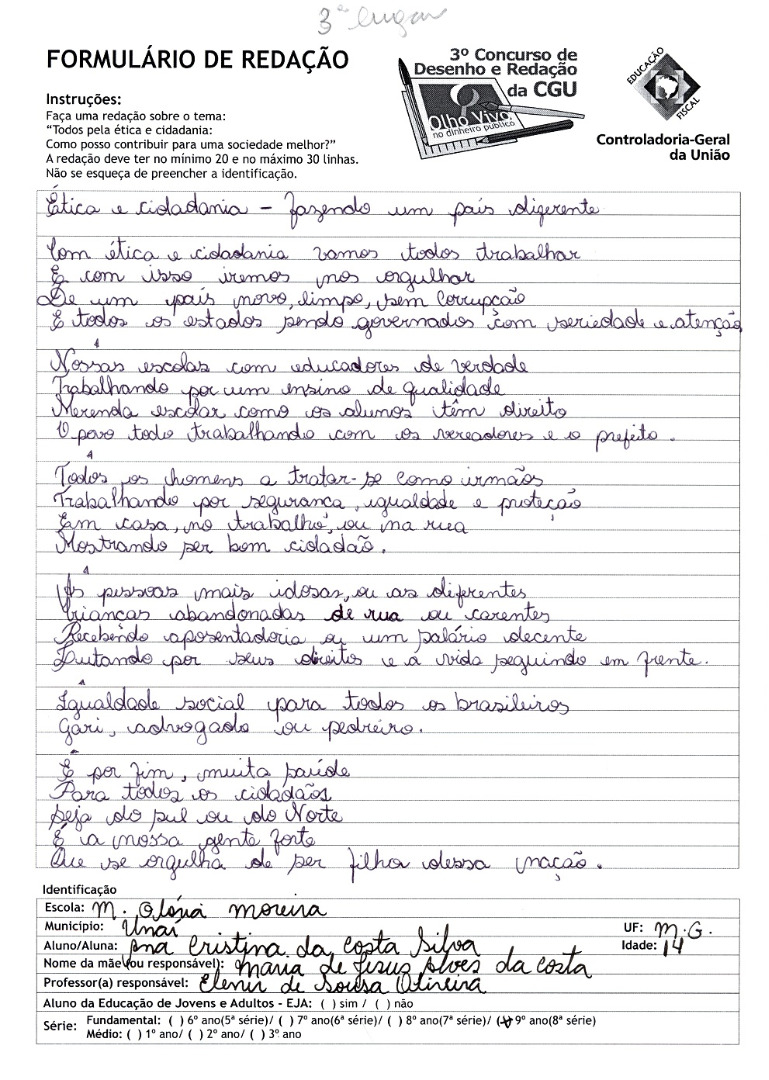 3º lugar
FORMULÁRIO DE REDAÇÃO
3º Concurso de
Desenho e Redação
da CGU
Olho Vivo
no dinheiro público
EDUCAÇÃO
FISCAL
Controladoria-Geral
da União
Instruções:
Faça uma redação sobre o tema:
“Todos pela ética e cidadania:
Como posso contribuir para uma sociedade melhor?”
A redação deve ter no mínimo 20 e no máximo 30 linhas.
Não se esqueça de preencher a identificação.
Ética e cidadania – fazendo um país diferente
Com ética e cidadania vamos todos trabalhar
E com isso iremos nos orgulhar
De um país novo, limpo, sem Corrupção
E todos os estados sendo governados com seriedade e atenção
Nossas escolas com educadores de verdade
Trabalhando por um ensino de qualidade
Merenda escolar como os alunos têm direito
O povo todo trabalhando com os vereadores e o prefeito.
Todos os homens a tratar-se como irmãos
Trabalhando por segurança, igualdade e proteção
Em casa, no trabalho, ou na rua
Mostrando ser bom cidadão.
As pessoas mais idosas, ou as diferentes
Crianças abandonadas de rua ou carentes
Recebendo aposentadoria ou um salário decente
Lutando por seus direitos e a vida seguindo em frente.
Igualdade social para todos os brasileiros
Gari, advogado ou pedreiro.
E por fim, muita saúde
Para todos os cidadãos
Seja do sul ou do Norte
É a nossa gente forte
Que se orgulha de ser filha dessa nação.
Identificação
Escola: M. Glória moreira
Município: Unaí UF: M.G.
Aluno/Aluna: Ana Cristina da Costa Silva Idade: 14
Nome da mãe(ou responsável): maria de Jesus Alves da costa
Professor(a) responsável: Elenir de Sousa Oliveira
Aluno da Educação de Jovens e Adultos - EJA: ( ) sim / ( ) não
Série: Fundamental: ( ) 6º ano(5ª série)/ ( ) 7º ano(6ª série)/ ( ) 8º ano(7ª série)/ (x) 9º ano(8ª série)
Médio: ( ) 1º ano/ ( ) 2º ano/ ( ) 3º ano